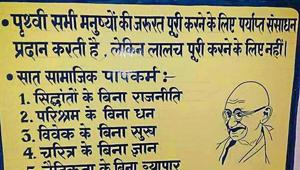 • पृथ्वी सभी मनुष्यों की जरुरत पूरी करने के लिए पर्याप्त संसाधन
प्रदान करती है , लेकिन लालच पूरी करने के लिए नहीं।
• सात सामाजिक पापकर्म :-
1. सिद्धांतों के बिना राजनीति
2. परिश्रम के बिना धन
3. विवेक के बिना सुख
4. चरित्र के बिना ज्ञान
5. नैतिकता के बिना व्यापार